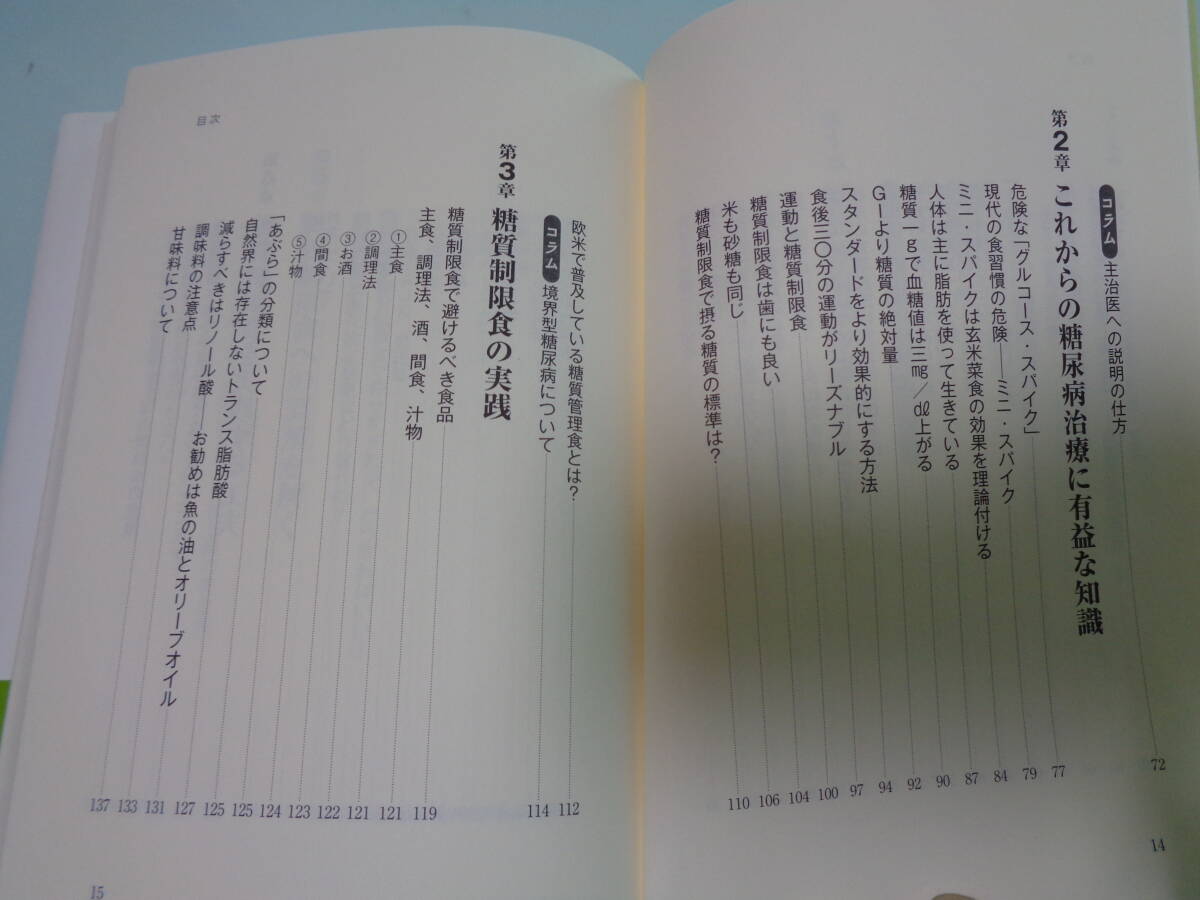 コラム 主治医への説明の仕方 72
第2章 これからの糖尿病治療に有益な知識
危険な「グルコース・スパイク」 77
現代の食習慣の危険――ミニ・スパイク 79
ミニ・スパイクは玄米菜食の効果を理論付ける 84
人体は主に脂肪を使って生きている 87
糖質一gで血糖値は三㎎/㎗上がる 90
GIより糖質の絶対量 92
スタンダードをより効果的にする方法 94
食後三〇分の運動がリーズナブル 97
運動と糖質制限食 100
糖質制限食は歯にも良い 104
米も砂糖も同じ 106
糖質制限食で摂る糖質の標準は? 110
14
欧米で普及している糖質管理食とは? 112
コラム 境界型糖尿病について 114
第3章 糖質制限食の実践
糖質制限食で避けるべき食品 119
主食、調理法、酒、間食、汁物 121
①主食 121
②調理法 122
③お酒 123
④間食 124
⑤汁物 125
「あぶら」の分類について 125
自然界には存在しないトランス脂肪酸 127
減らすべきはリノール酸――お勧めは魚の油とオリーブオイル 131
調味料の注意点 133
甘味料について 137
目次
15